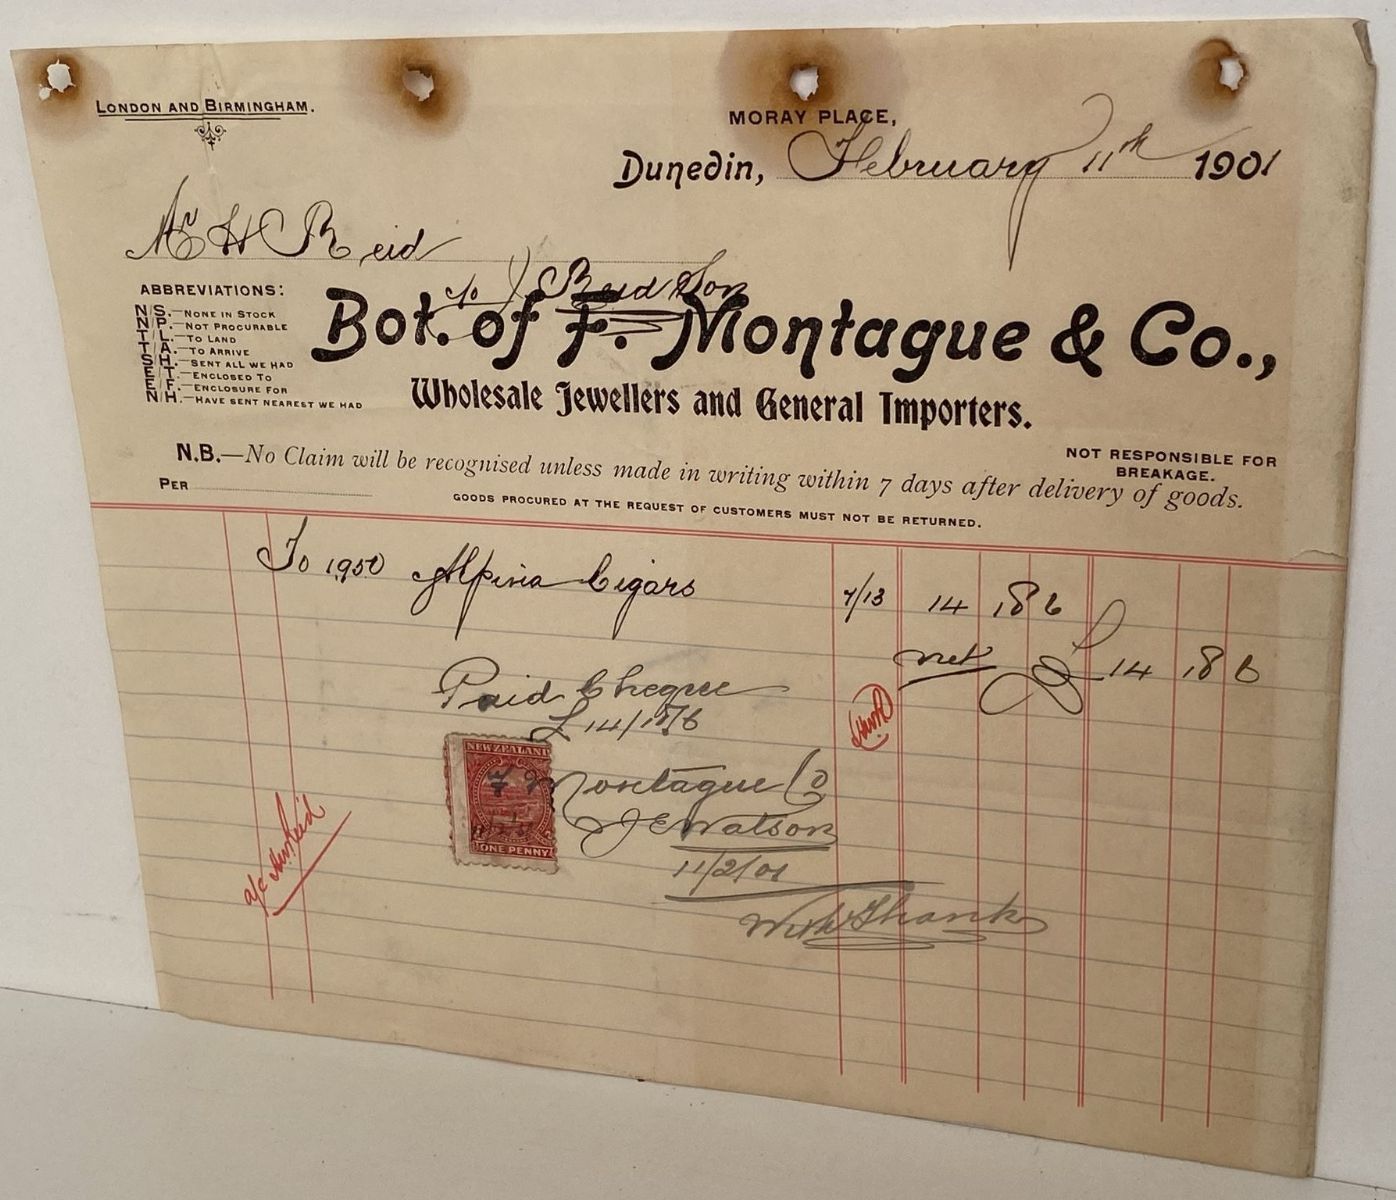 LONDON AND BIRMINGHAM.
MORAY PLACE,
Dunedin, February 11th 1901
Mr H Reid
c/o J Reid & Son
ABBREVIATIONS:
N/S.—NONE IN STOCK
N/P.—NOT PROCURABLE
T/L.—TO LAND
T/A.—TO ARRIVE
S/H.—SENT ALL WE HAD
E/T.—ENCLOSED TO
E/F.—ENCLOSURE FOR
N/H.—HAVE SENT NEAREST WE HAD
Bot. of F. Montague & Co.,
Wholesale Jewellers and General Importers.
NOT RESPONSIBLE FOR
BREAKAGE.
N.B.—No Claim will be recognised unless made in writing within 7 days after delivery of goods.
PER
GOODS PROCURED AT THE REQUEST OF CUSTOMERS MUST NOT BE RETURNED.
To 1950 Alpina Cigars 7/13 14 18 6
nett £ 14 18 6
Paid Cheque
£14/18/6
NEW ZEALAND
F Montague Co
J E Watson
ONE PENNY
11/2/01
With Thanks
a/c Reid